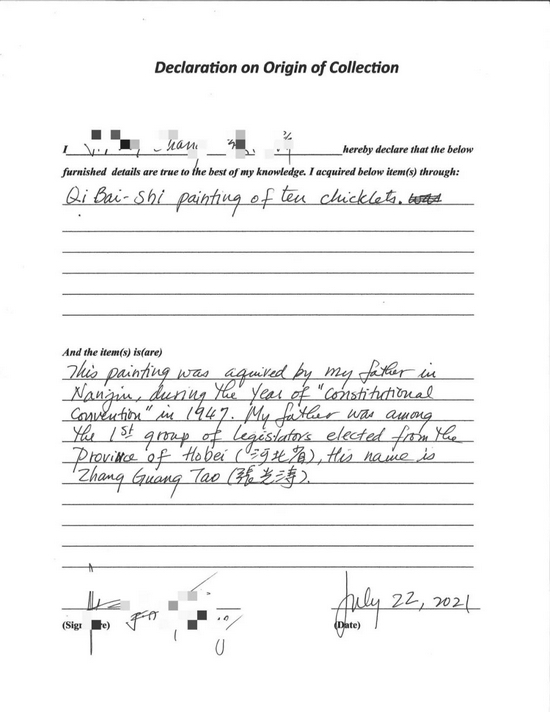 Declaration on Origin of Collection
I hereby declare that the below
furnished details are true to the best of my knowledge. I acquired below item(s) through:
Qi Bai-Shi painting of ten chicklets.
And the item(s) is(are)
This painting was aquired by my father in
Nanjin, during the Year of "Constitutional
Convention" in 1947. My father was among
the 1st group of legislators elected from the
Province of Hobei (河北省), His name is
Zhang Guang Tao (張光涛).
July 22, 2021
(Date)